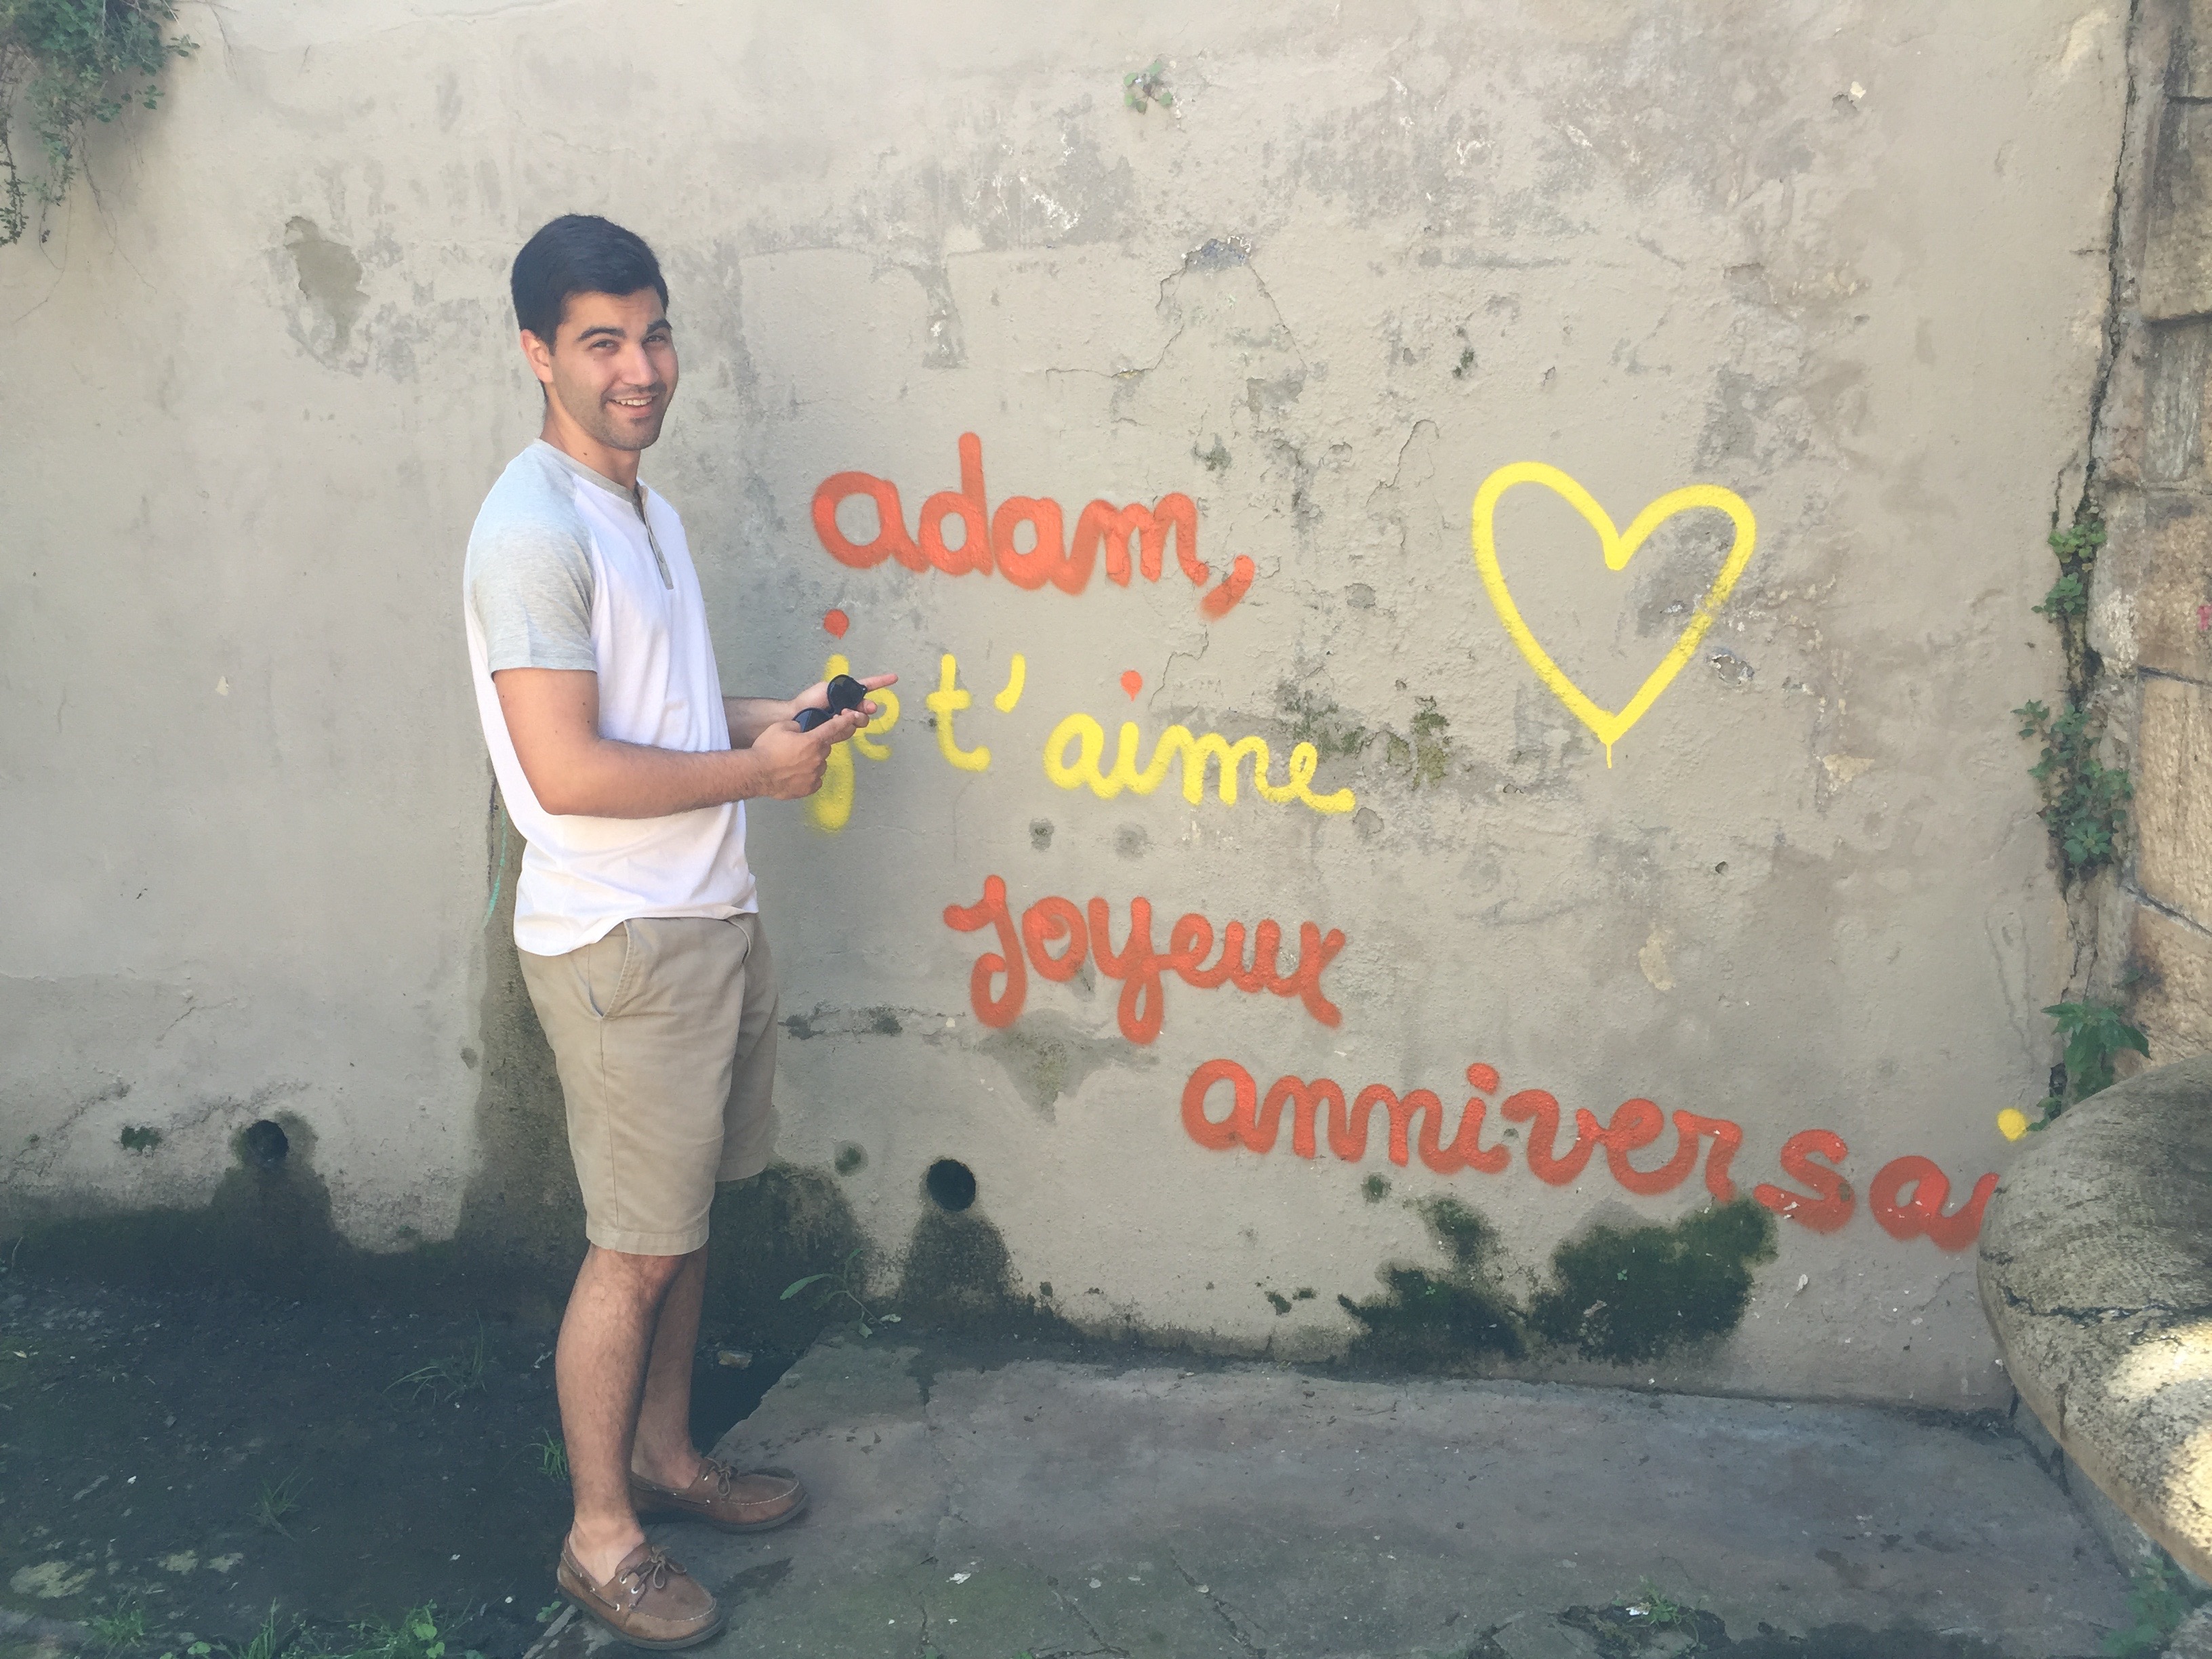 adam,
je t'aime
Joyeux
anniversai